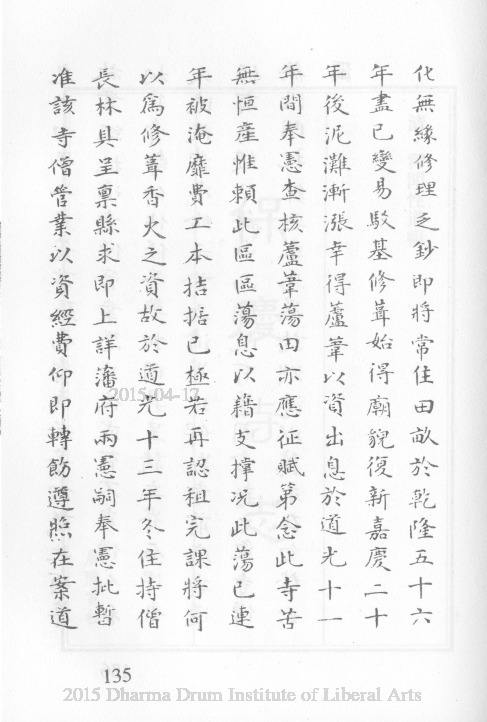 化無緣修理乏鈔即將常住田畝於乾隆五十六
年盡已變易駁基修葺始得廟貌復新嘉慶二十
年後泥灘漸漲幸得蘆葦以資出息於道光十一
年間奉憲查核蘆葦蕩田亦應征賦第念此寺苦
無恒產惟賴此區區蕩息以藉支撐况此蕩已連
年被淹靡費工本拮据已極若再認租完課將何
以為修葺香火之資故於道光十三年冬住持僧
長林具呈稟縣求即上詳藩府兩憲嗣奉憲批暫
准該寺僧管業以資經費仰即轉飭遵照在案道
2015-04-17
135
2015 Dharma Drum Institute of Liberal Arts